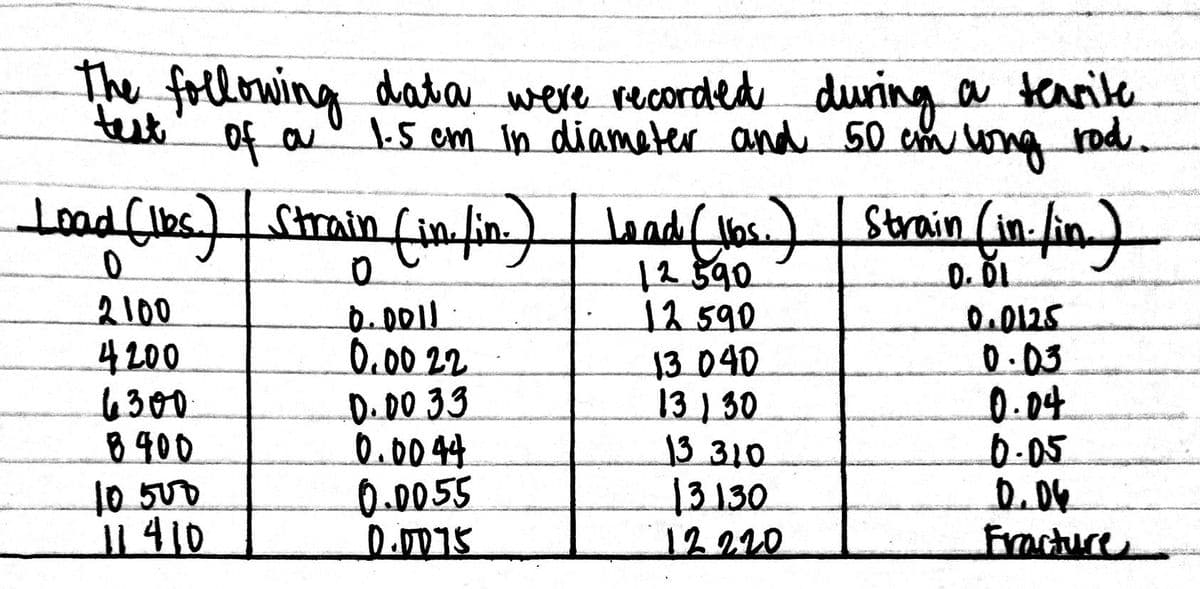 The following data were recorded during a tensile
test of a 1.5 cm in diameter and 50 cm long rod.
Load (lbs.) Strain (in./in.) Load (lbs.) Strain (in./in.)
0 0 12 590 0.01
2100 0.0011 12 590 0.0125
4200 0.0022 13 040 0.03
6300 0.0033 13130 0.04
8400 0.0044 13 310 0.05
10 500 0.0055 13130 0.06
11 410 0.0075 12 220 Fracture